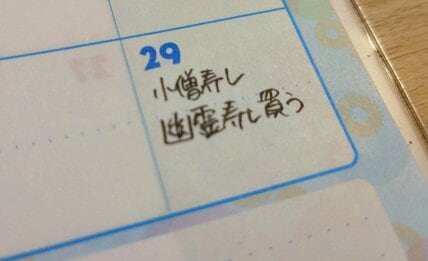 29
小僧寿し
幽霊寿し買う